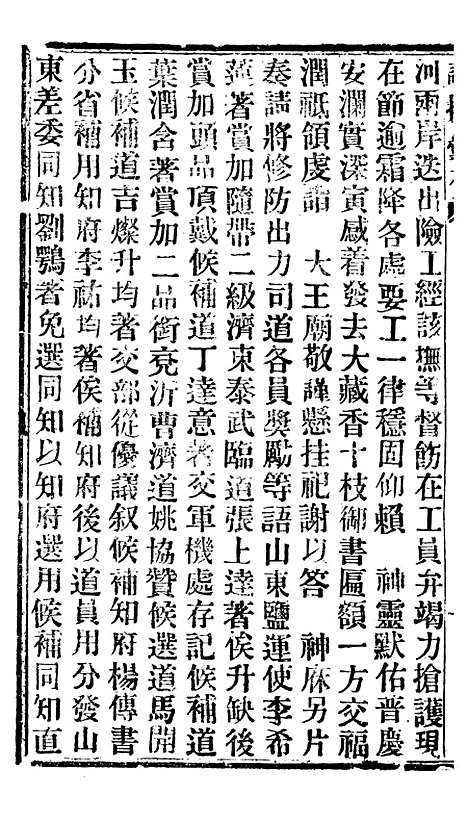 河兩岸迭出險工經該撫等督飭在工員弁竭力搶護現
在節逾霜降各處要工一律穩固仰賴　神靈默佑普慶
安瀾實深寅感着發去大藏香十枝御書匾額一方交福
潤祗領虔詣　大王廟敬謹懸挂祀謝以答　神庥另片
奏請將修防出力司道各員獎勵等語山東鹽運使李希
蓮著賞加隨帶二級濟東泰武臨道張上達著俟升缺後
賞加頭品頂戴候補道丁達意著交軍機處存記候補道
葉潤含著賞加二品銜兗沂曹濟道姚協贊候選道馬開
玉候補道吉燦升均著交部從優議叙候補知府楊傳書
分省補用知府李祐均著俟補知府後以道員用分發山
東差委同知劉鶚著免選同知以知府選用候補同知直